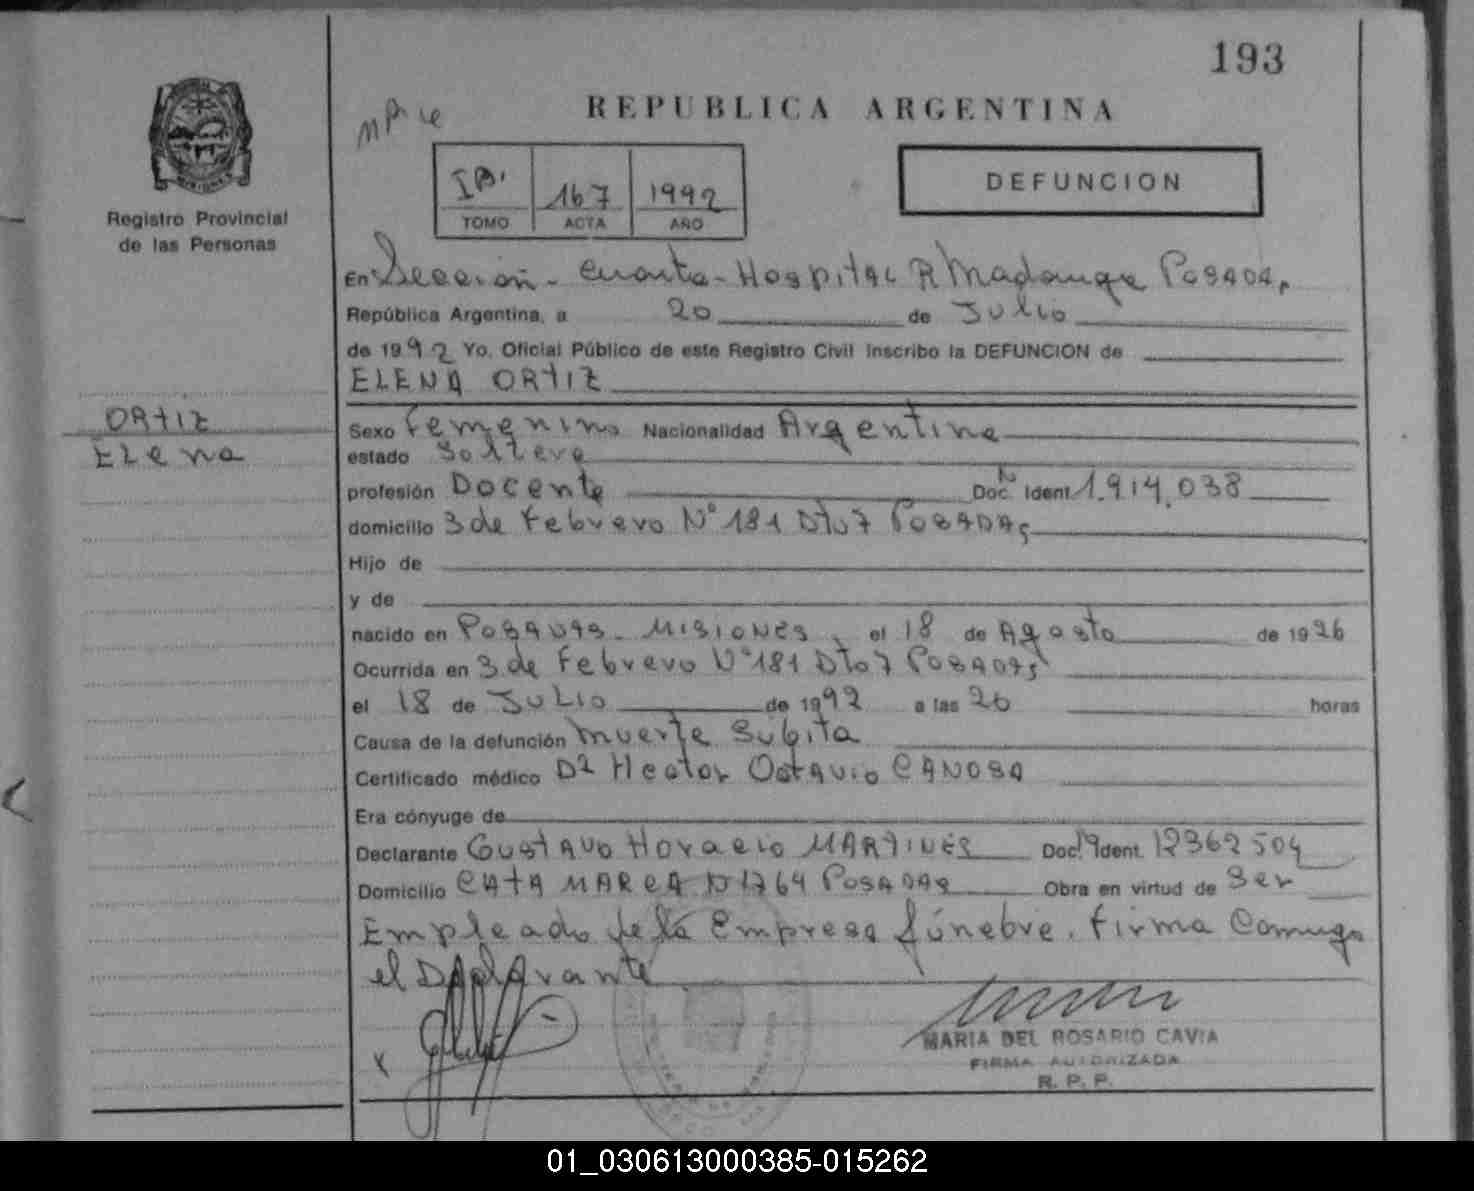 193
REPUBLICA ARGENTINA
DEFUNCION
167 1992
TOMO ACTA AÑO
Registro Provincial
de las Personas
MISIONES
ORTIZ
Elena
En Sección - Cuarta - Hospital R Madariaga POSADAS
República Argentina, a 20 de Julio
de 1992 Yo, Oficial Público de este Registro Civil inscribo la DEFUNCION de
ELENA ORTIZ
Sexo Femenino Nacionalidad Argentina
estado Soltera
profesión Docente Doc. Ident 1.914.038
domicilio 3 de Febrero N° 181 Dto 7 POSADAS
Hijo de
y de
nacido en POSADAS - MISIONES, el 18 de Agosto de 1926
Ocurrida en 3 de Febrero N° 181 Dto 7 POSADAS
el 18 de JULIO de 1992 a las 20 horas
Causa de la defunción Muerte Subita
Certificado médico Dr Hector Octavio CANOSA
Era cónyuge de
Declarante Gustavo Horacio MARTINES Doc. Ident. 12362504
Domicilio CATAMARCA N 1764 POSADAS Obra en virtud de Ser
Empleado de la Empresa fúnebre. Firma Conmigo
el Declarante
MARIA DEL ROSARIO CAVIA
FIRMA AUTORIZADA
R. P. P.
01_030613000385-015262